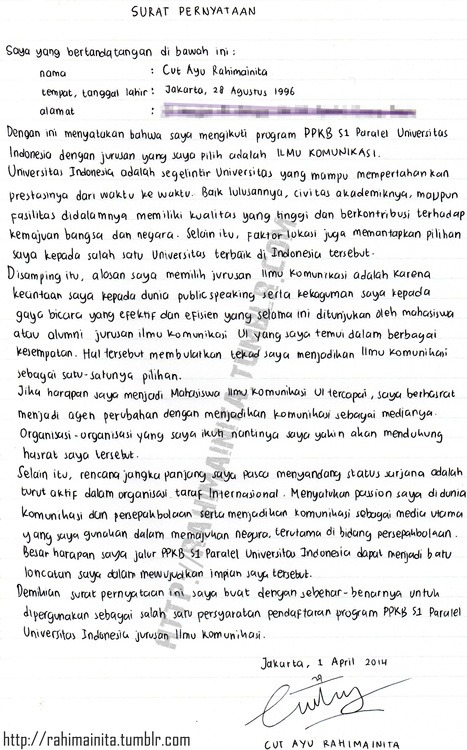 SURAT PERNYATAAN
Saya yang bertanda tangan di bawah ini :
nama : Cut Ayu Rahimainita
tempat, tanggal lahir : Jakarta, 28 Agustus 1996
alamat :
Dengan ini menyatakan bahwa saya mengikuti program PPKB S1 Paralel Universitas
Indonesia dengan jurusan yang saya pilih adalah ILMU KOMUNIKASI.
Universitas Indonesia adalah segelintir Universitas yang mampu mempertahankan
prestasinya dari waktu ke waktu. Baik lulusannya, civitas akademiknya, maupun
fasilitas didalamnya memiliki kualitas yang tinggi dan berkontribusi terhadap
kemajuan bangsa dan negara. Selain itu, faktor lokasi juga memantapkan pilihan
saya kepada salah satu Universitas terbaik di Indonesia tersebut.
Disamping itu, alasan saya memilih jurusan Ilmu Komunikasi adalah karena
kecintaan saya kepada dunia public speaking serta kekaguman saya kepada
gaya bicara yang efektif dan efisien yang selama ini ditunjukan oleh mahasiswa
atau alumni jurusan ilmu komunikasi UI yang saya temui dalam berbagai
kesempatan. Hal tersebut membulatkan tekad saya menjadikan Ilmu Komunikasi
sebagai satu-satunya pilihan.
Jika harapan saya menjadi Mahasiswa Ilmu Komunikasi UI tercapai, saya berhasrat
menjadi agen perubahan dengan menjadikan komunikasi sebagai medianya.
Organisasi-organisasi yang saya ikuti nantinya saya yakin akan mendukung
hasrat saya tersebut.
Selain itu, rencana jangka panjang saya pasca menyandang status sarjana adalah
turut aktif dalam organisasi taraf Internasional. Menyatukan passion saya di dunia
komunikasi dan persepakbolaan serta menjadikan komunikasi sebagai media utama
yang saya gunakan dalam memajukan negara, terutama di bidang persepakbolaan.
Besar harapan saya jalur PPKB S1 Paralel Universitas Indonesia dapat menjadi batu
loncatan saya dalam mewujudkan impian saya tersebut.
Demikian surat pernyataan ini saya buat dengan sebenar-benarnya untuk
dipergunakan sebagai salah satu persyaratan pendaftaran program PPKB S1 Paralel
Universitas Indonesia jurusan Ilmu Komunikasi.
Jakarta, 1 April 2014
CUT AYU RAHIMAINITA
HTTP://RAHIMAINITA.TUMBLR.COM
http://rahimainita.tumblr.com